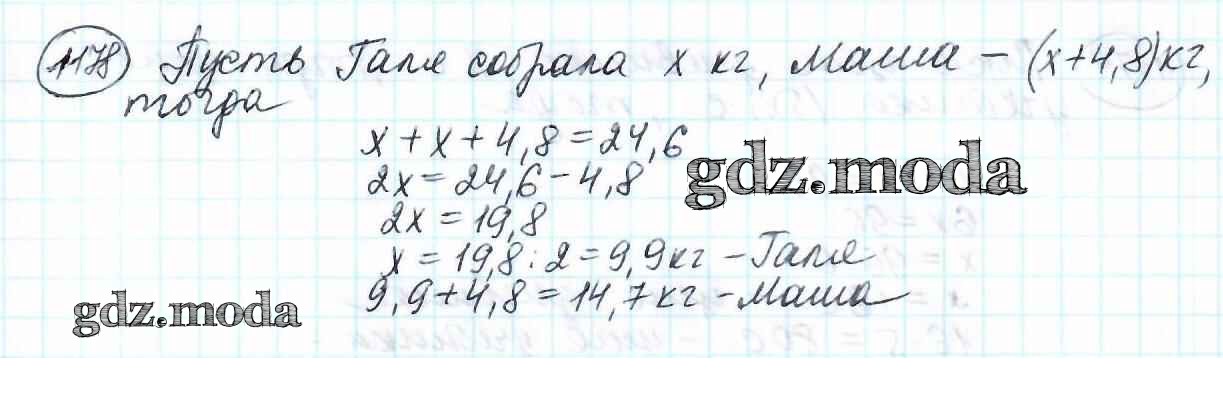 1178 Пусть Галя собрала x кг, Маша – (x+4,8)кг,
тогда
x + x + 4,8 = 24,6
2x = 24,6 - 4,8
gdz.moda
2x = 19,8
x = 19,8 : 2 = 9,9 кг – Галя
9,9 + 4,8 = 14,7 кг – Маша
gdz.moda